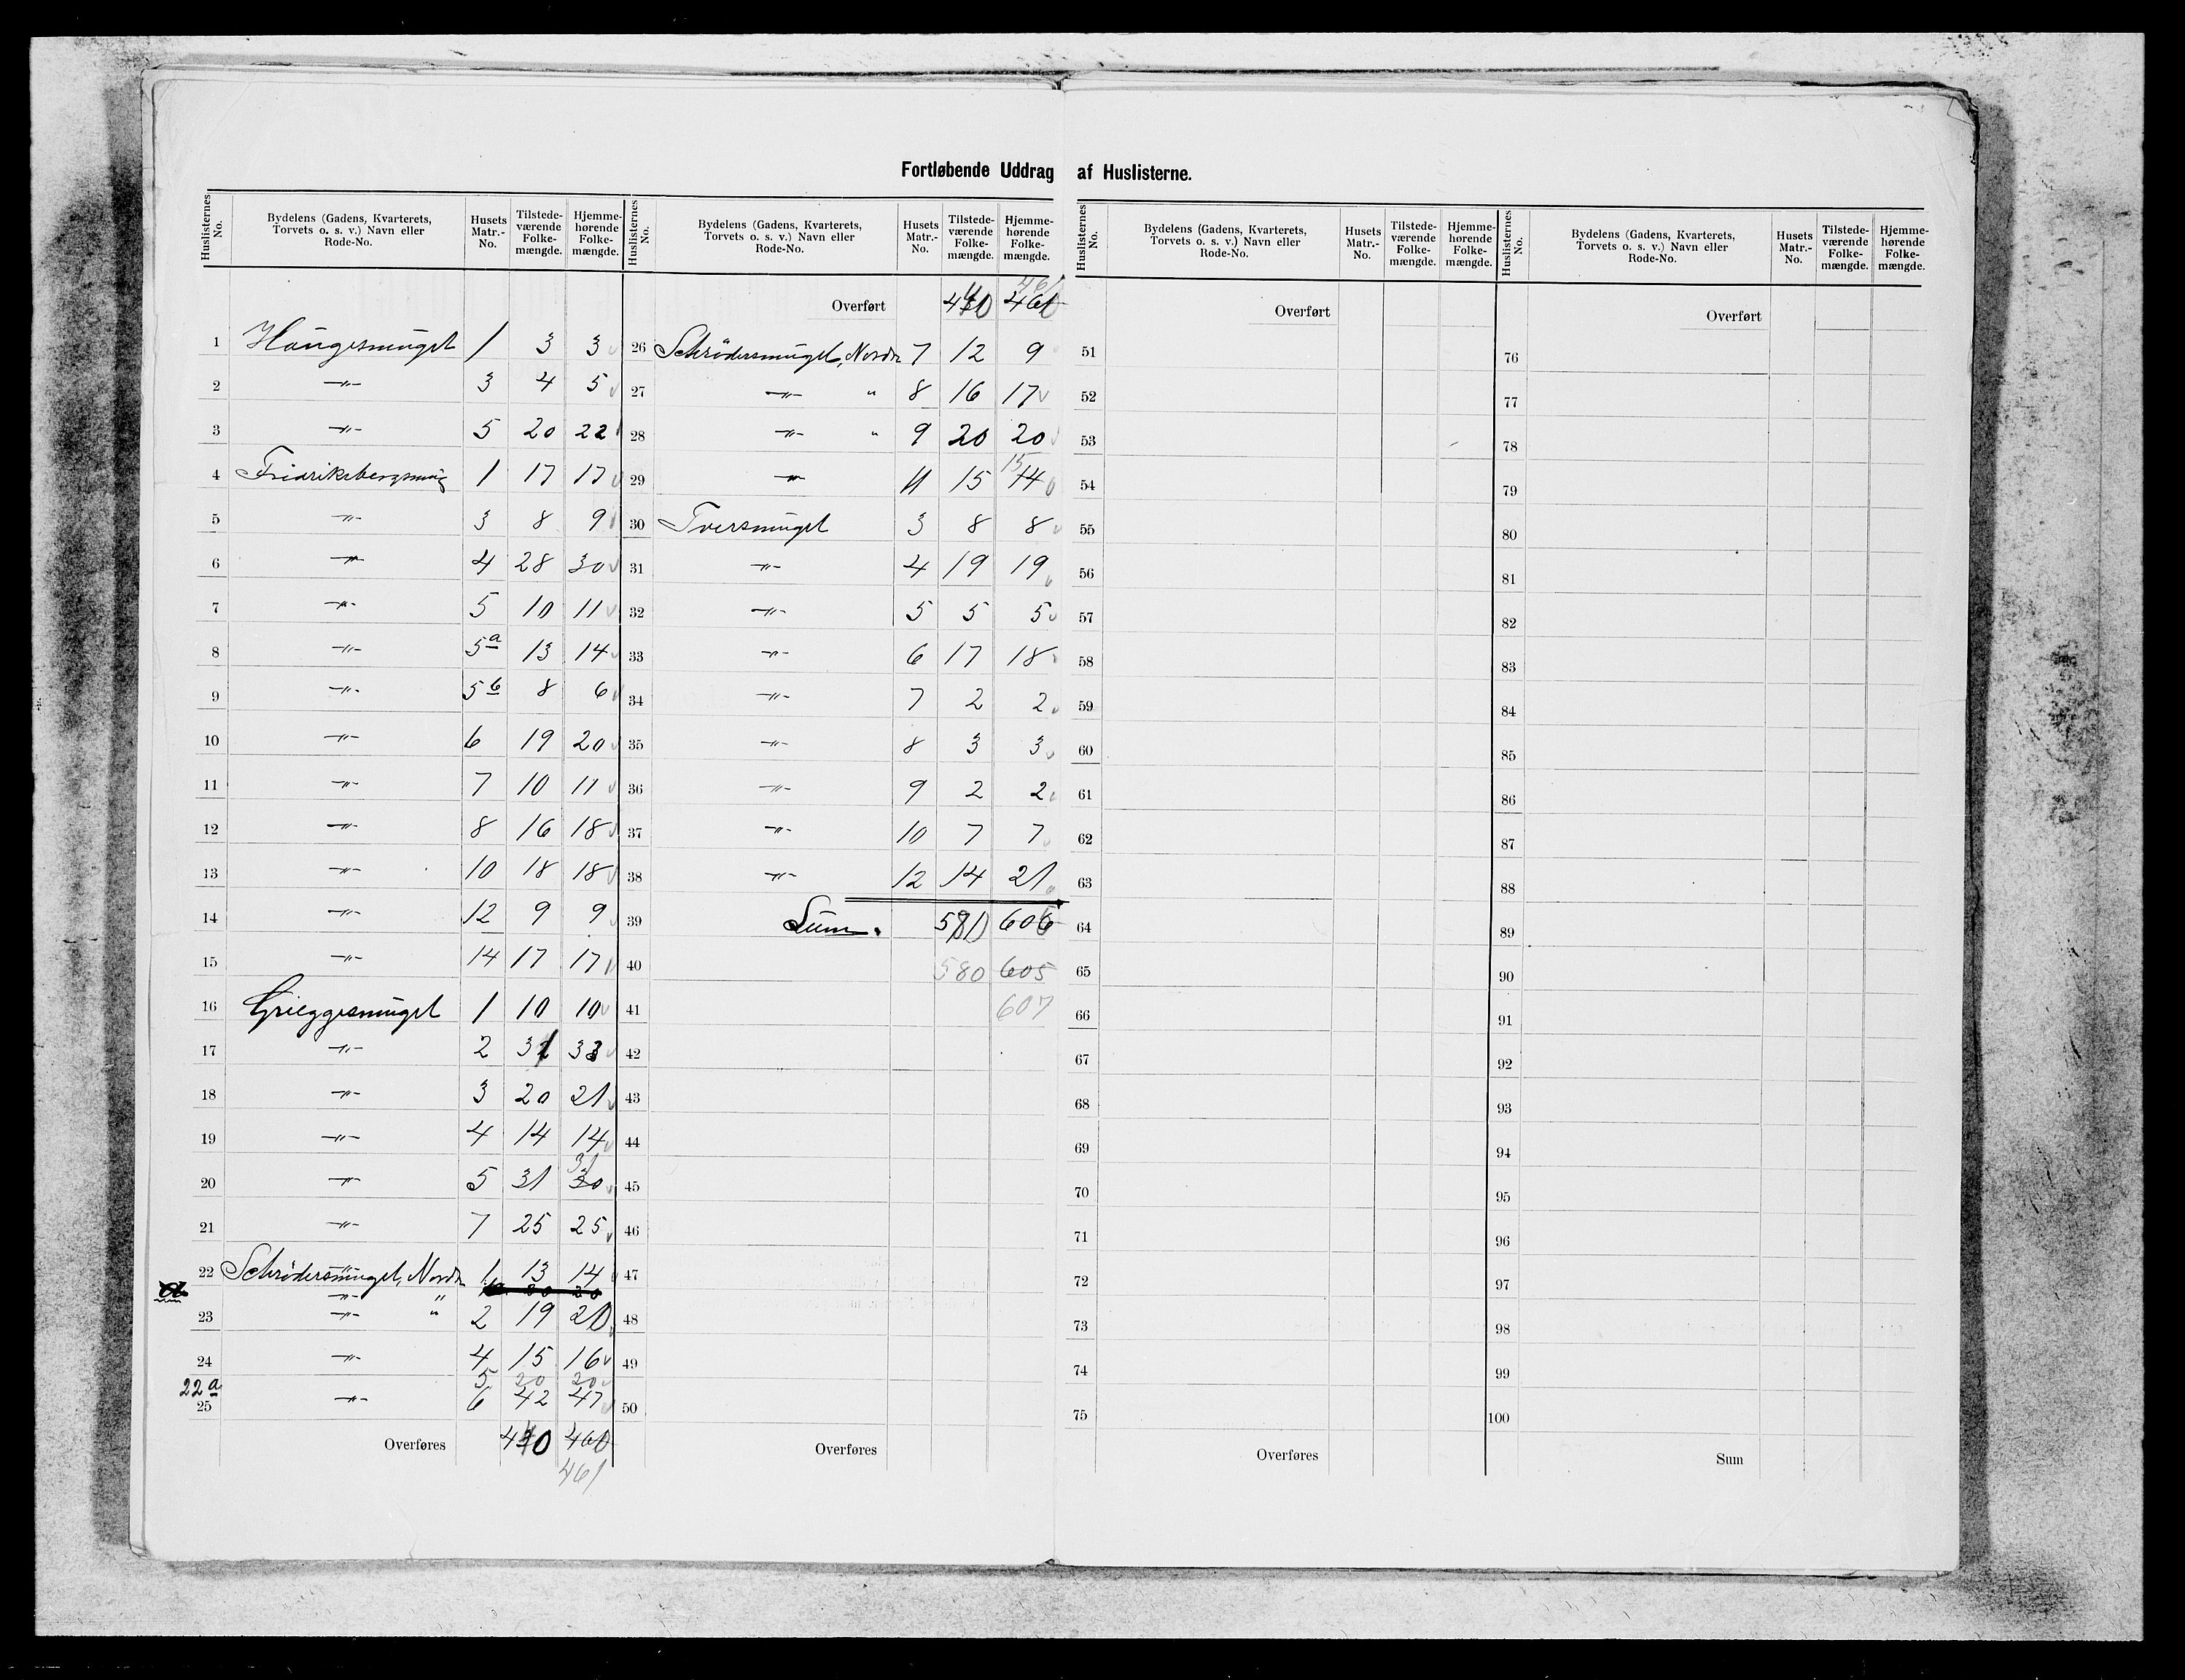 Fortløbende Uddrag af Huslisterne.
Huslisternes No. | Bydelens (Gadens, Kvarterets, Torvets o. s. v.) Navn eller Rode-No. | Husets Matr.-No. | Tilstede-værende Folke-mængde. | Hjemme-hørende Folke-mængde.
1 Haugesmuget 1 3 3
2 —"— 3 4 5
3 —"— 5 20 22
4 Fridriksbergsmug 1 17 17
5 —"— 3 8 9
6 —"— 4 28 30
7 —"— 5 10 11
8 —"— 5a 13 14
9 —"— 5b 8 6
10 —"— 6 19 20
11 —"— 7 10 11
12 —"— 8 16 18
13 —"— 10 18 18
14 —"— 12 9 9
15 —"— 14 17 17
16 Grieggesmuget 1 10 10
17 —"— 2 31 33
18 —"— 3 20 21
19 —"— 4 14 14
20 —"— 5 31 30 31
21 —"— 7 25 25
22 Schrødersmuget, Nordr 1 13 14
a —"— " 20 20
23 —"— " 2 19 20
24 —"— 4 15 16
22a 5 20 20
25 —"— 6 42 47
Overføres 440 460
461
Huslisternes No. | Bydelens (Gadens, Kvarterets, Torvets o. s. v.) Navn eller Rode-No. | Husets Matr.-No. | Tilstede-værende Folke-mængde. | Hjemme-hørende Folke-mængde.
461
Overført 440 460
26 Schrødersmuget, Nordr 7 12 9
27 —"— " 8 16 17
28 —"— " 9 20 20
29 —"— 11 15 14 15
30 Tversmuget 3 8 8
31 —"— 4 19 19
32 —"— 5 5 5
33 —"— 6 17 18
34 —"— 7 2 2
35 —"— 8 3 3
36 —"— 9 2 2
37 —"— 10 7 7
38 —"— 12 14 21
39 Sum. 580 606
40 580 605
41 607
42
43
44
45
46
47
48
49
50
Overføres
Huslisternes No. | Bydelens (Gadens, Kvarterets, Torvets o. s. v.) Navn eller Rode-No. | Husets Matr.-No. | Tilstede-værende Folke-mængde. | Hjemme-hørende Folke-mængde.
Overført
51
52
53
54
55
56
57
58
59
60
61
62
63
64
65
66
67
68
69
70
71
72
73
74
75
Overføres
Huslisternes No. | Bydelens (Gadens, Kvarterets, Torvets o. s. v.) Navn eller Rode-No. | Husets Matr.-No. | Tilstede-værende Folke-mængde. | Hjemme-hørende Folke-mængde.
Overført
76
77
78
79
80
81
82
83
84
85
86
87
88
89
90
91
92
93
94
95
96
97
98
99
100
Sum